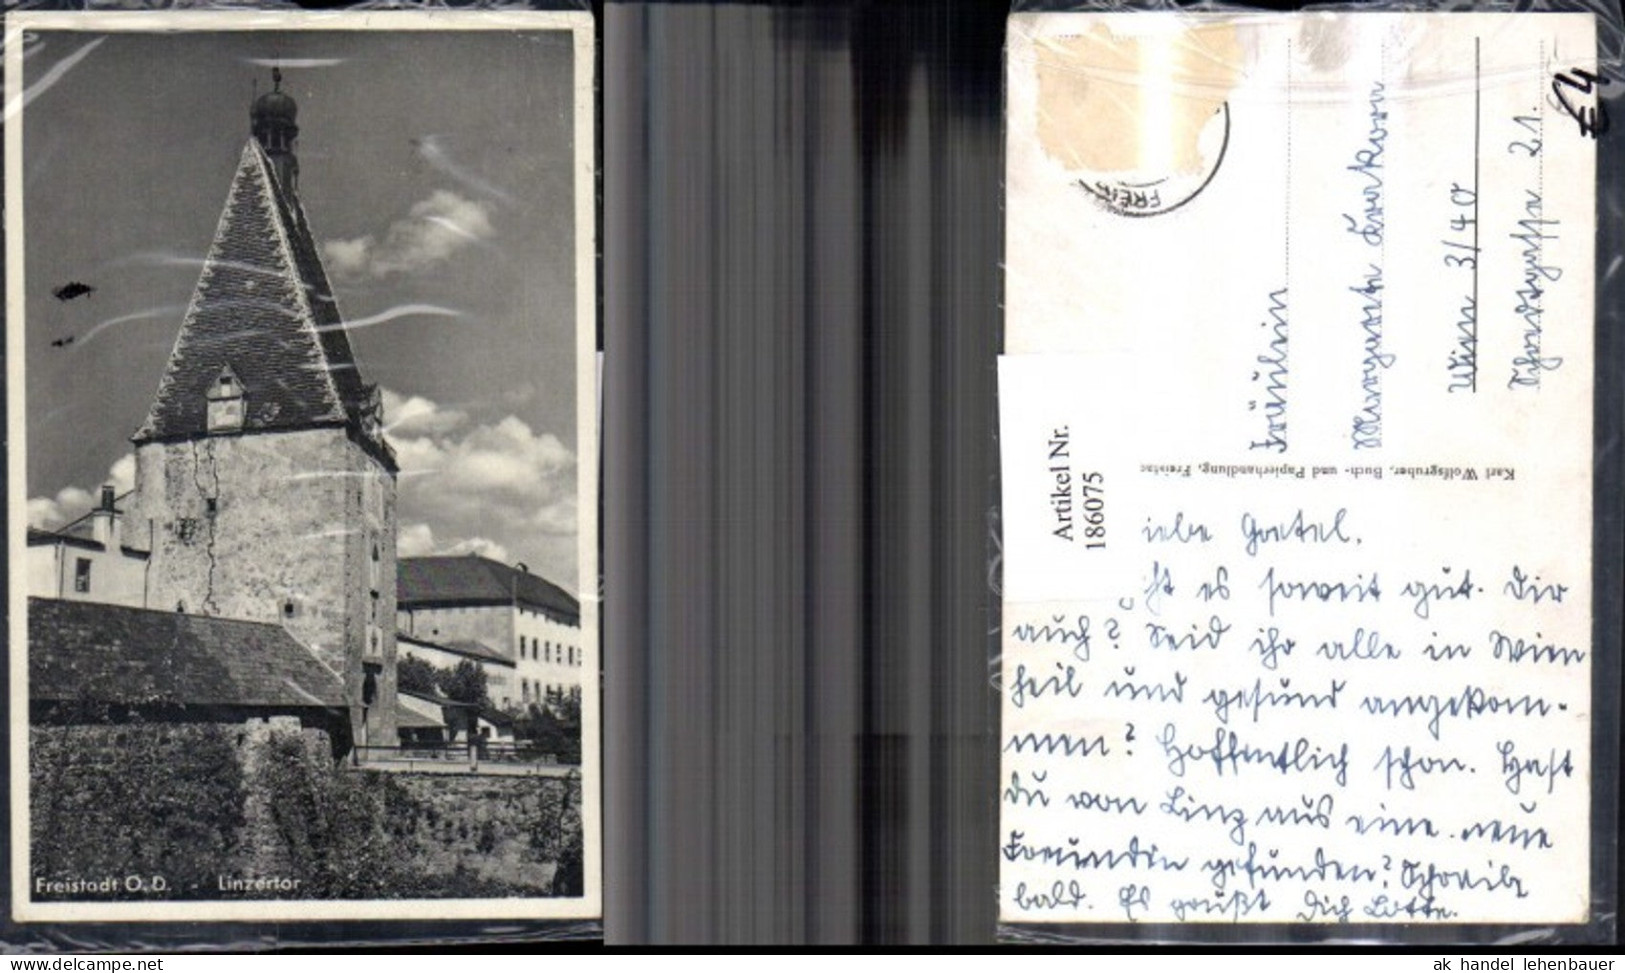 Freistadt O. D. - Linzertor
FREIS
€4
Fräulein
Margarete
Wien 3/40
21.
Karl Wolfsgruber, Buch- und Papierhandlung, Freistac
Artikel Nr.
186075
iebe Gretel.
ist es soweit gut. Dir
auch? Seid ihr alle in Wien
heil und gesund angekom-
men? Hoffentlich schon. Hast
du von Linz aus eine neue
Freundin gefunden? Schreibe
bald. Es grüßt Dich Lotte.
ak handel lehenbauer
www.delcampe.net